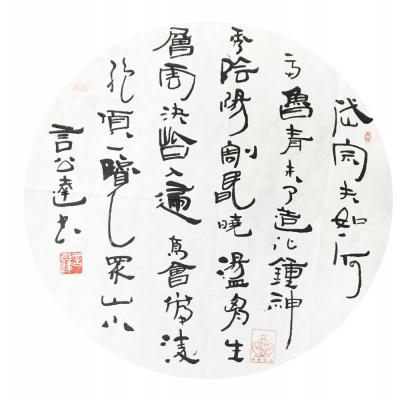 岱宗夫如何
齊魯青未了造化鍾神
秀陰陽割昏曉盪胸生
層雲決眥入歸鳥會當凌
絕頂一覽眾山小
言公達书